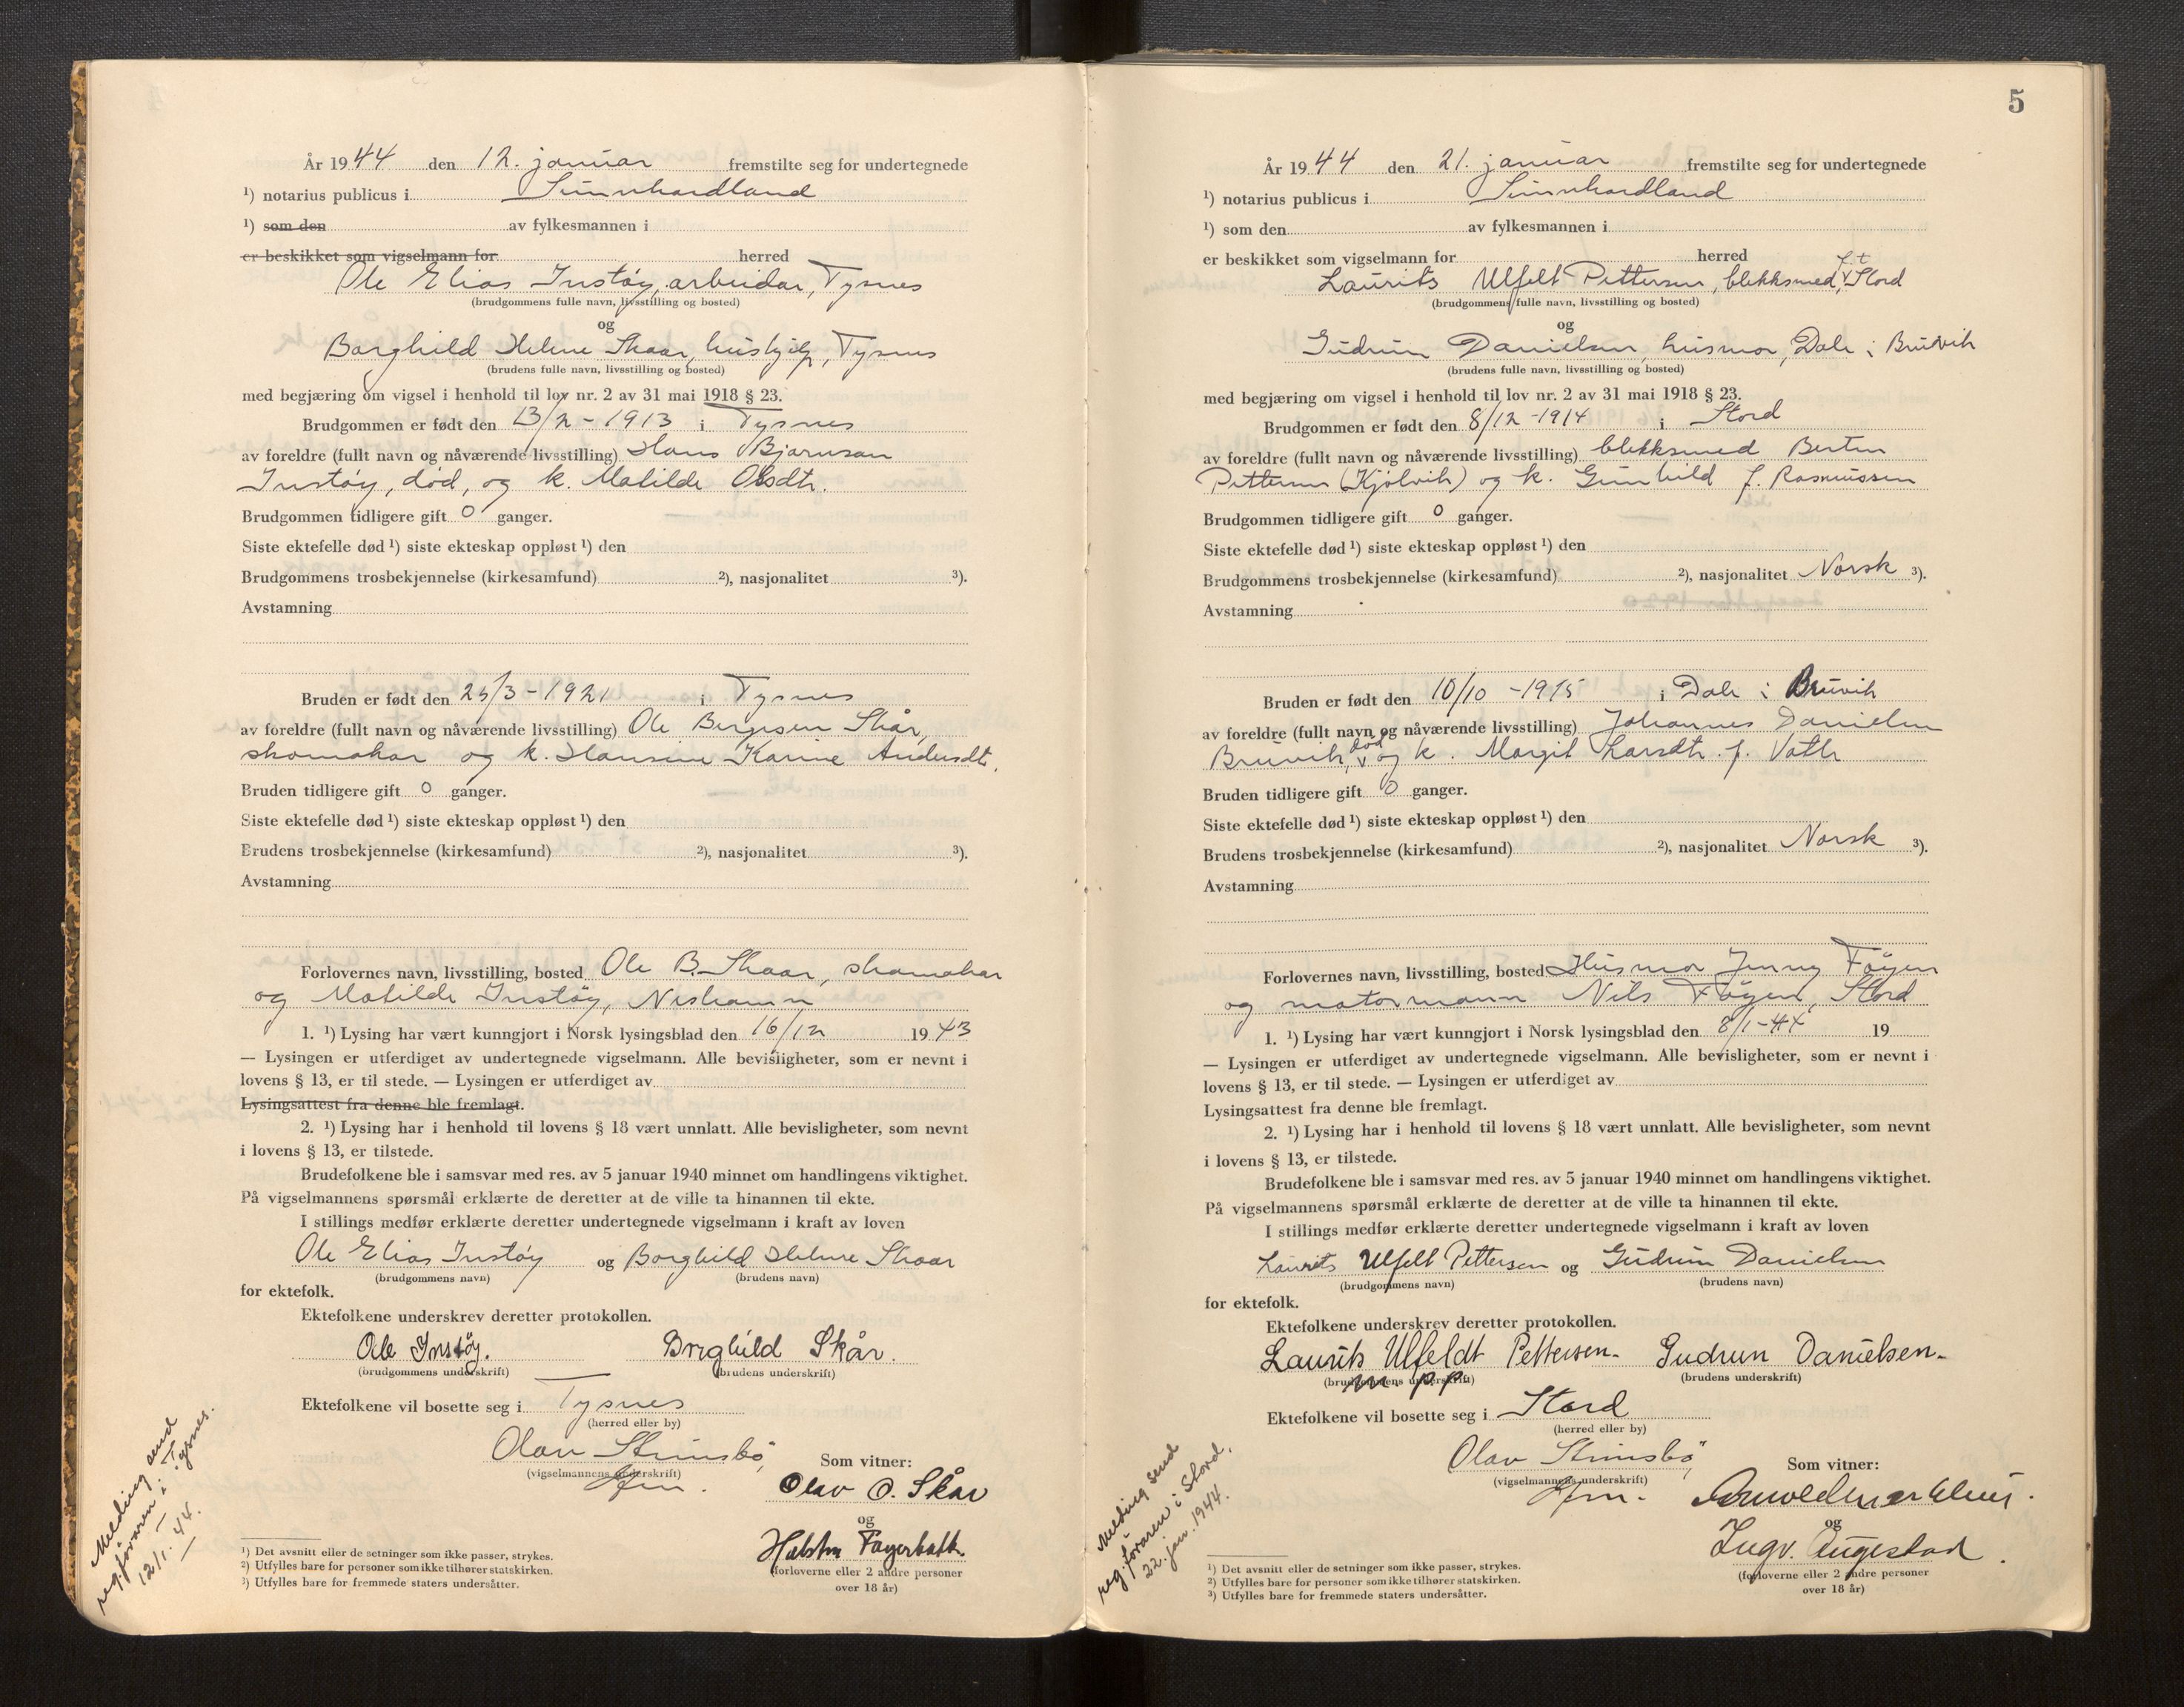 År 1944 den 12. januar fremstilte seg for undertegnede
¹) notarius publicus i Sunnhordland
¹) som den av fylkesmannen i
er beskikket som vigselmann for herred
Ole Elias Instöy, arbeidar, Tysnes
(brudgommens fulle navn, livsstilling og bosted)
og
Borghild Helene Skaar, hushjelp, Tysnes
(brudens fulle navn, livsstilling og bosted)
med begjæring om vigsel i henhold til lov nr. 2 av 31 mai 1918 § 23.
Brudgommen er født den 13/2 - 1913 i Tysnes
av foreldre (fullt navn og nåværende livsstilling) Hans Bjarnson
Instöy, död, og k. Matilde Olsdtr.
Brudgommen tidligere gift 0 ganger.
Siste ektefelle død ¹) siste ekteskap oppløst ¹) den
Brudgommens trosbekjennelse (kirkesamfund) ²), nasjonalitet ³).
Avstamning
Bruden er født den 25/3 - 1921 i Tysnes
av foreldre (fullt navn og nåværende livsstilling) Ole Bergesen Skår,
skomakar og k. Hansine Karine Andersdtr.
Bruden tidligere gift 0 ganger.
Siste ektefelle død ¹) siste ekteskap oppløst ¹) den
Brudens trosbekjennelse (kirkesamfund) ²), nasjonalitet ³).
Avstamning
Forlovernes navn, livsstilling, bosted Ole B. Skaar, skomakar
og Matilde Instöy, Neshamn
1. ¹) Lysing har vært kunngjort i Norsk lysingsblad den 16/12 1943
— Lysingen er utferdiget av undertegnede vigselmann. Alle bevisligheter, som er nevnt i
lovens § 13, er til stede. — Lysingen er utferdiget av
Lysingsattest fra denne ble fremlagt.
2. ¹) Lysing har i henhold til lovens § 18 vært unnlatt. Alle bevisligheter, som nevnt
i lovens § 13, er tilstede.
Brudefolkene ble i samsvar med res. av 5 januar 1940 minnet om handlingens viktighet.
På vigselmannens spørsmål erklærte de deretter at de ville ta hinannen til ekte.
I stillings medfør erklærte deretter undertegnede vigselmann i kraft av loven
Ole Elias Instöy og Borghild Helene Skaar
(brudgommens navn) (brudens navn)
for ektefolk.
Ektefolkene underskrev deretter protokollen.
Ole Instöy. Brghild Skår.
(brudgommens underskrift) (brudens underskrift)
Ektefolkene vil bosette seg i Tysnes
(herred eller by)
Olav Stensbö,
(vigselmannens underskrift)
Som vitner:
Olav O. Skår
og
(forloverne eller 2 andre personer
over 18 år)
Melding send
reg.föraren i Tysnes.
12/1. 44.
¹) Det avsnitt eller de setninger som ikke passer, strykes.
²) Utfylles bare for personer som ikke tilhører statskirken.
³) Utfylles bare for fremmede staters undersåtter.
5
År 1944 den 21. januar fremstilte seg for undertegnede
¹) notarius publicus i Sunnhordland
¹) som den av fylkesmannen i
er beskikket som vigselmann for herred
Laurits Ulfelt Pettersen, blekksmed, f.t Stord
(brudgommens fulle navn, livsstilling og bosted)
og
Gudrun Danielsen, husmor, Dale i Bruvik
(brudens fulle navn, livsstilling og bosted)
med begjæring om vigsel i henhold til lov nr. 2 av 31 mai 1918 § 23.
Brudgommen er født den 8/12 - 1914 i Stord
av foreldre (fullt navn og nåværende livsstilling) blekksmed Bertin
Pettersen (Kjölvik) og k. Gunhild f. Rasmussen
Brudgommen tidligere gift 0 ganger.
Siste ektefelle død ¹) siste ekteskap oppløst ¹) den
Brudgommens trosbekjennelse (kirkesamfund) ²), nasjonalitet Norsk ³).
Avstamning
Bruden er født den 10/10 - 1915 i Dale i Bruvik
av foreldre (fullt navn og nåværende livsstilling) Johannes Danielsen
Bruvik, död og k. Margit Larsdtr. f. Vatle
Bruden tidligere gift 0 ganger.
Siste ektefelle død ¹) siste ekteskap oppløst ¹) den
Brudens trosbekjennelse (kirkesamfund) ²), nasjonalitet Norsk ³).
Avstamning
Forlovernes navn, livsstilling, bosted Husmor Jenny Föyen
og motormann Nils Föyen, Stord
1. ¹) Lysing har vært kunngjort i Norsk lysingsblad den 8/1-44 19
— Lysingen er utferdiget av undertegnede vigselmann. Alle bevisligheter, som er nevnt i
lovens § 13, er til stede. — Lysingen er utferdiget av
Lysingsattest fra denne ble fremlagt.
2. ¹) Lysing har i henhold til lovens § 18 vært unnlatt. Alle bevisligheter, som nevnt
i lovens § 13, er tilstede.
Brudefolkene ble i samsvar med res. av 5 januar 1940 minnet om handlingens viktighet.
På vigselmannens spørsmål erklærte de deretter at de ville ta hinannen til ekte.
I stillings medfør erklærte deretter undertegnede vigselmann i kraft av loven
Laurits Ulfelt Pettersen og Gudrun Danielsen
(brudgommens navn) (brudens navn)
for ektefolk.
Ektefolkene underskrev deretter protokollen.
Laurits Ulfeldt Pettersen- Gudrun Danielsen-
m. p p.
(brudgommens underskrift) (brudens underskrift)
Ektefolkene vil bosette seg i Stord
(herred eller by)
Olav Stensbö,
(vigselmannens underskrift)
Som vitner:
og
Ingv. Augestad.
(forloverne eller 2 andre personer
over 18 år)
Melding send
reg.föraren i Stord,
22. jan. 1944.
¹) Det avsnitt eller de setninger som ikke passer, strykes.
²) Utfylles bare for personer som ikke tilhører statskirken.
³) Utfylles bare for fremmede staters undersåtter.